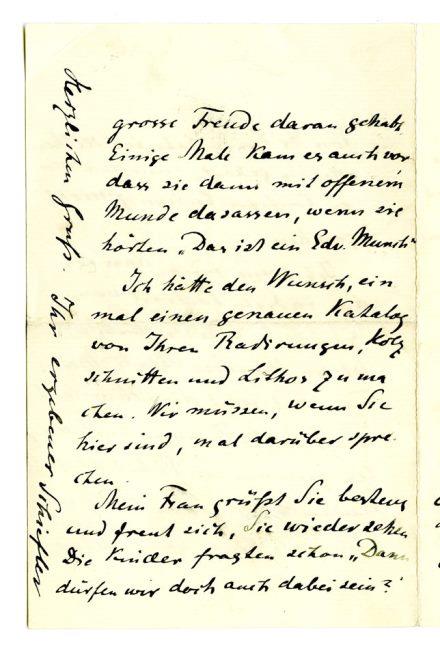 grosse Freude daran gehabt
Einige Male kam es auch vor
dass sie dann mit offenem
Munde dasassen, wenn sie
hörten „Das ist ein Edv. Munch“
Ich hätte den Wunsch, ein
mal einen genauen Katalog
von Ihren Radirungen, Holz
schnitten und Lithos zu ma
chen. Wir müssen, wenn Sie
hier sind, mal darüber spre-
chen.
Mein Frau grüßt Sie bestens
und freut sich, Sie wiederzusehen
Die Kinder fragten schon „Dann
dürfen wir doch auch dabei sein?“
Herzlichen Gruß. Ihr ergebener Schiefler